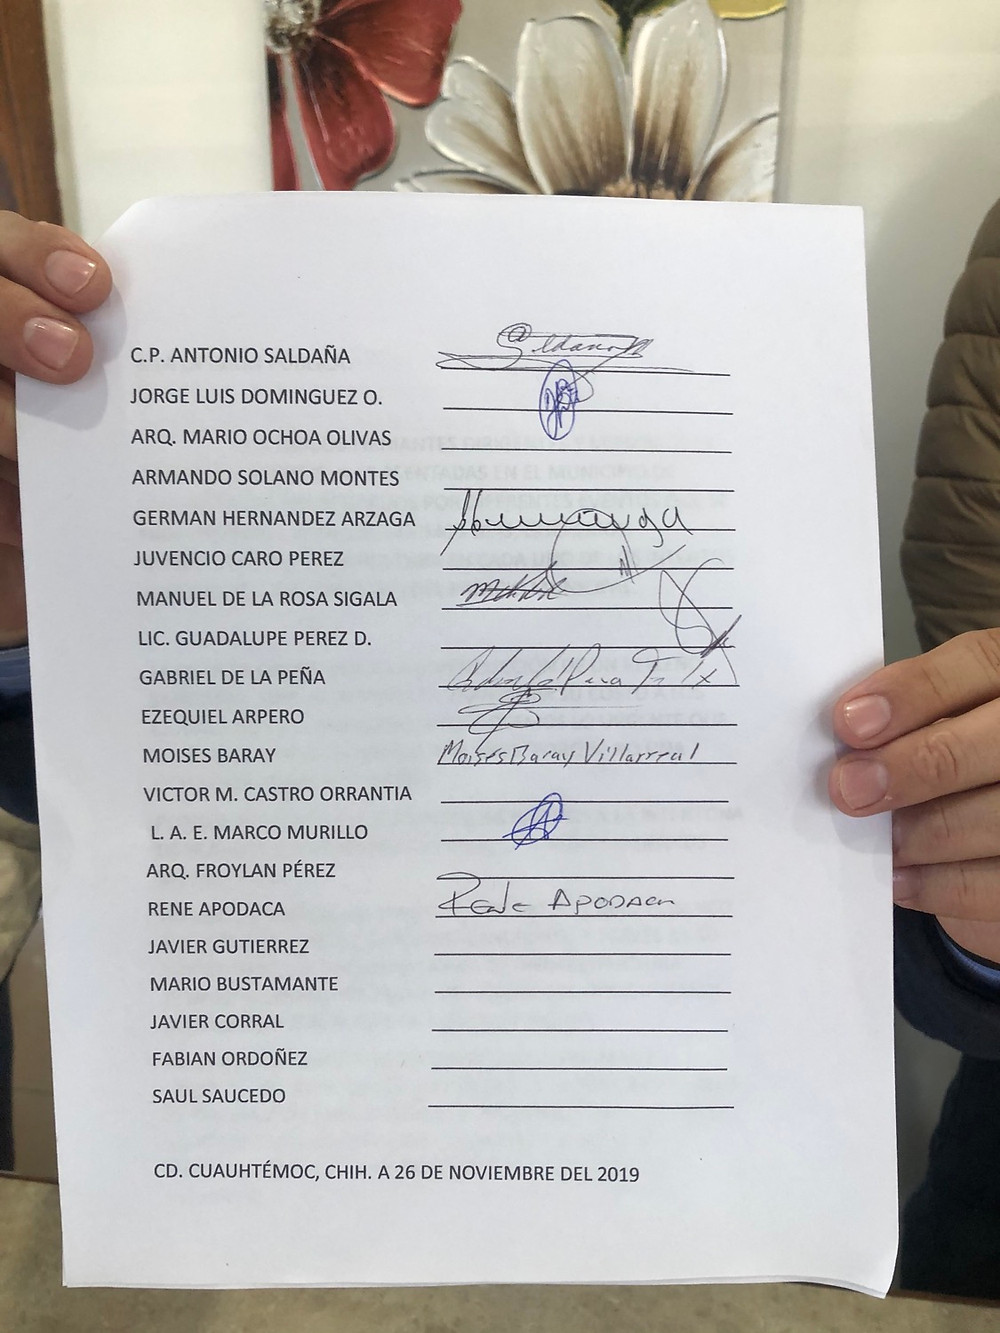 C.P. ANTONIO SALDAÑA
JORGE LUIS DOMINGUEZ O.
ARQ. MARIO OCHOA OLIVAS
ARMANDO SOLANO MONTES
GERMAN HERNANDEZ ARZAGA
JUVENCIO CARO PEREZ
MANUEL DE LA ROSA SIGALA
LIC. GUADALUPE PEREZ D.
GABRIEL DE LA PEÑA
EZEQUIEL ARPERO
MOISES BARAY Moises Baray Villarreal
VICTOR M. CASTRO ORRANTIA
L. A. E. MARCO MURILLO
ARQ. FROYLAN PÉREZ
RENE APODACA Rene APODACA
JAVIER GUTIERREZ
MARIO BUSTAMANTE
JAVIER CORRAL
FABIAN ORDOÑEZ
SAUL SAUCEDO
CD. CUAUHTÉMOC, CHIH. A 26 DE NOVIEMBRE DEL 2019